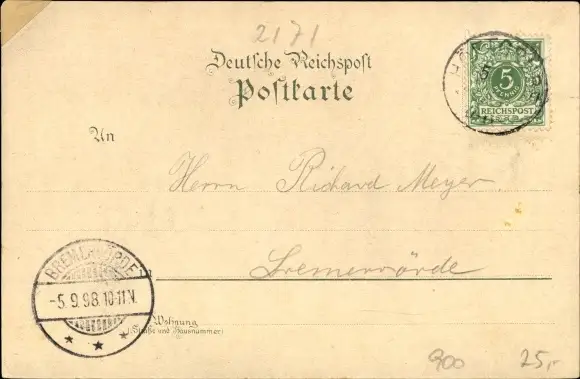 2171
Deutsche Reichspost
Postkarte
5
PFENNIG
REICHSPOST
An
Herrn Richard Meyer
Bremervörde
BREMERVÖRDE
-5.9.98.10-11N.
Wohnung
(Straße und Hausnummer)
900
25,-